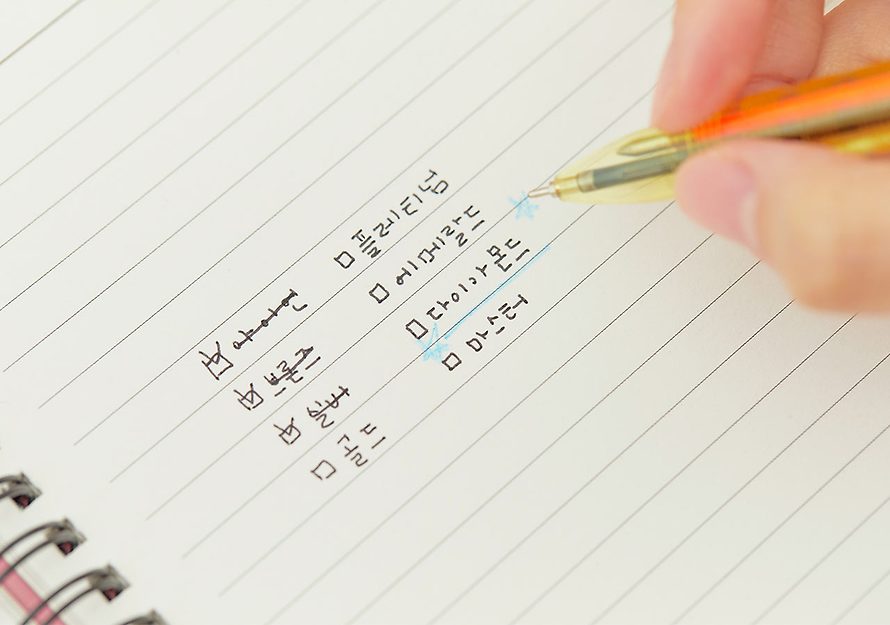 아이언
브론즈
실버
골드
플레티넘
에메랄드
다이아몬드
마스터